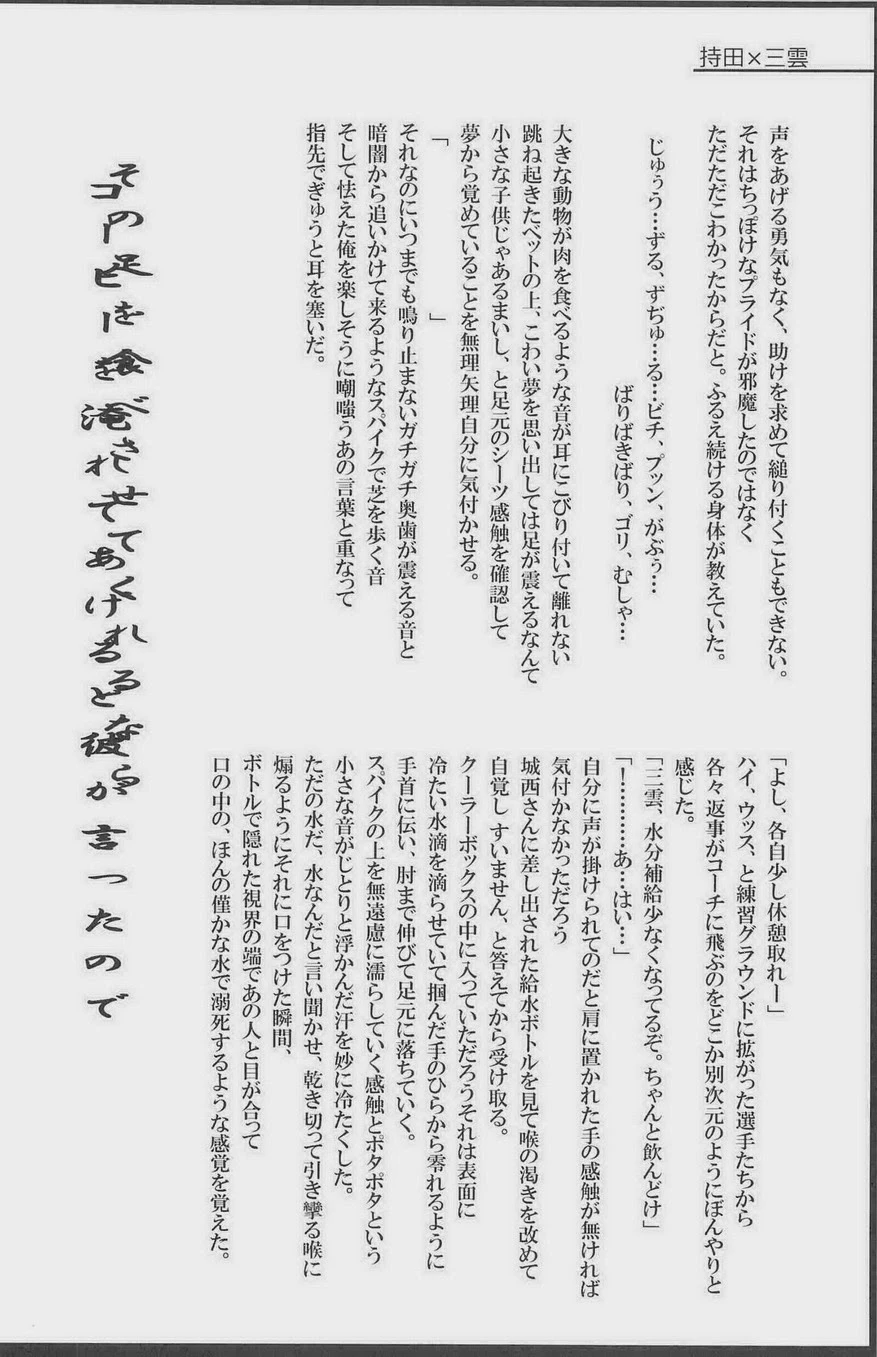 持田×三雲
声をあげる勇気もなく、助けを求めて縋り付くこともできない。
それはちっぽけなプライドが邪魔したのではなく
ただただこわかったからだと。ふるえ続ける身体が教えていた。
じゅぅう…ずる、ずぢゅ…る…ビチ、プッン、がぶぅ…
ばりばきばり、ゴリ、むしゃ…
大きな動物が肉を食べるような音が耳にこびり付いて離れない
跳ね起きたベットの上、こわい夢を思い出しては足が震えるなんて
小さな子供じゃあるまいし、と足元のシーツ感触を確認して
夢から覚めていることを無理矢理自分に気付かせる。
「　　　　　　　　」
それなのにいつまでも鳴り止まないガチガチ奥歯が震える音と
暗闇から追いかけて来るようなスパイクで芝を歩く音
そして怯えた俺を楽しそうに嘲嗤うあの言葉と重なって
指先でぎゅうと耳を塞いだ。
「よし、各自少し休憩取れー」
ハイ、ウッス、と練習グラウンドに拡がった選手たちから
各々返事がコーチに飛ぶのをどこか別次元のようにぼんやりと
感じた。
「三雲、水分補給少なくなってるぞ。ちゃんと飲んどけ」
「！…………あ…はい…」
自分に声が掛けられてのだと肩に置かれた手の感触が無ければ
気付かなかっただろう
城西さんに差し出された給水ボトルを見て喉の渇きを改めて
自覚し すいません、と答えてから受け取る。
クーラーボックスの中に入っていただろうそれは表面に
冷たい水滴を滴らせていて掴んだ手のひらから零れるように
手首に伝い、肘まで伸びて足元に落ちていく。
スパイクの上を無遠慮に濡らしていく感触とポタポタという
小さな音がじとりと浮かんだ汗を妙に冷たくした。
ただの水だ、水なんだと言い聞かせ、乾き切って引き攣る喉に
煽るようにそれに口をつけた瞬間、
ボトルで隠れた視界の端であの人と目が合って
口の中の、ほんの僅かな水で溺死するような感覚を覚えた。
その足を食べさせてくれるなら
コーヒーを淹れてあげると彼が言ったので